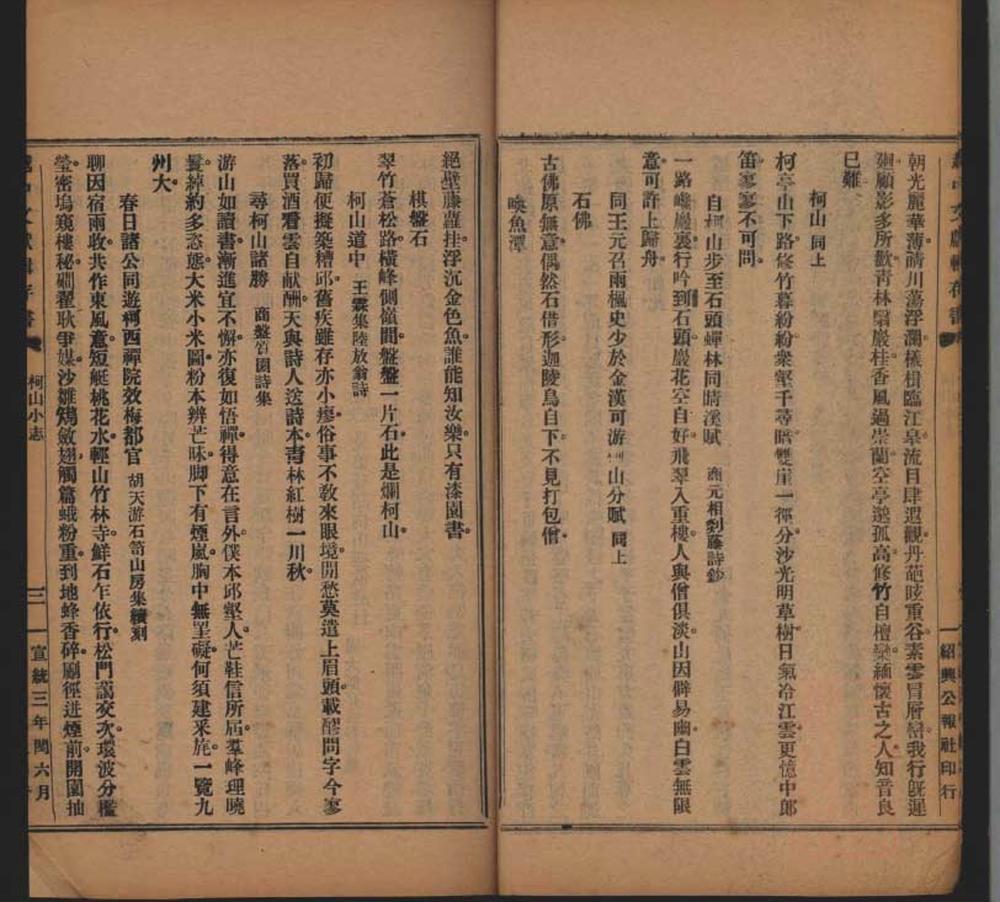 紹興公報社印行
朝光麗華薄晴川蕩浮瀾檥楫臨江皋流目肆遐觀丹葩昡重谷素雲冒層巒我行旣遲
迴顧影多所歡靑林翳巖桂香風過崇蘭空亭邈孤高修竹自檀欒緬懷古之人知音良
已難
柯山 同上
柯亭山下路修竹暮紛紛衆壑千尋暗雙崖一徑分沙光明草樹日氣冷江雲更憶中郎
笛寥寥不可問
自柯山步至石頭蟬林同時溪賦 商元相剡藤詩鈔
一路巉巖裏行吟到石頭巖花空自好飛翠入重樓人與僧俱淡山因僻易幽白雲無限
意可許上歸舟
同王元召兩楓史少於金漢可游山分賦 同上
石佛
古佛原無意偶然石借形迦陵鳥自下不見打包僧
喚魚潭
絕壁藤蘿挂浮沉金色魚誰能知汝樂只有漆園書
棋盤石
翠竹蒼松路橫峰側嶺間盤盤一片石此是爛柯山
柯山道中 王霖集陸放翁詩
初歸便擬築糟邱舊疾雖存亦小瘳俗事不敎來眼境閒愁莫遣上眉頭載醪問字今寥
落買酒看雲自献酬天與詩人送詩本靑林紅樹一川秋
尋柯山諸勝 商盤質園詩集
游山如讀書漸進宜不懈亦復如悟禪得意在言外僕本邱壑人芒鞋信所屆羣峰理曉
鬟綽約多恣態大米小米圖粉本辨芒昧脚下有煙嵐胸中無罣礙何須建釆旄一覽九
州大
春日諸公同遊柯西禪院效梅都官 胡天游石笥山房集續刻
聊因宿雨收共作東風意短艇桃花水輕山竹林寺鮮石乍依行松門藹交次環波分檻
瑩密塢窺樓秘磵翟耿爭媒沙雛鴆斂翅觸篇蛾粉重到地蜂香碎廟徑迸煙前開園抽
柯山小志
三
宣統三年閏六月